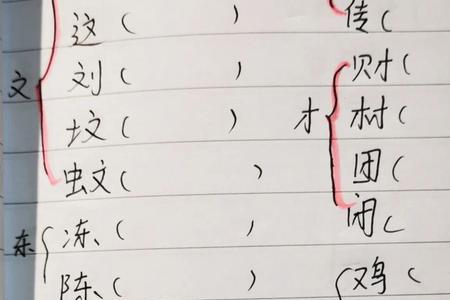 这(　　) 传(
刘(　　) 财(
文
坟(　　) 才 材(
蚊(　　) 团(
闭(
东 冻(　　)
陈(　　) 鸡(